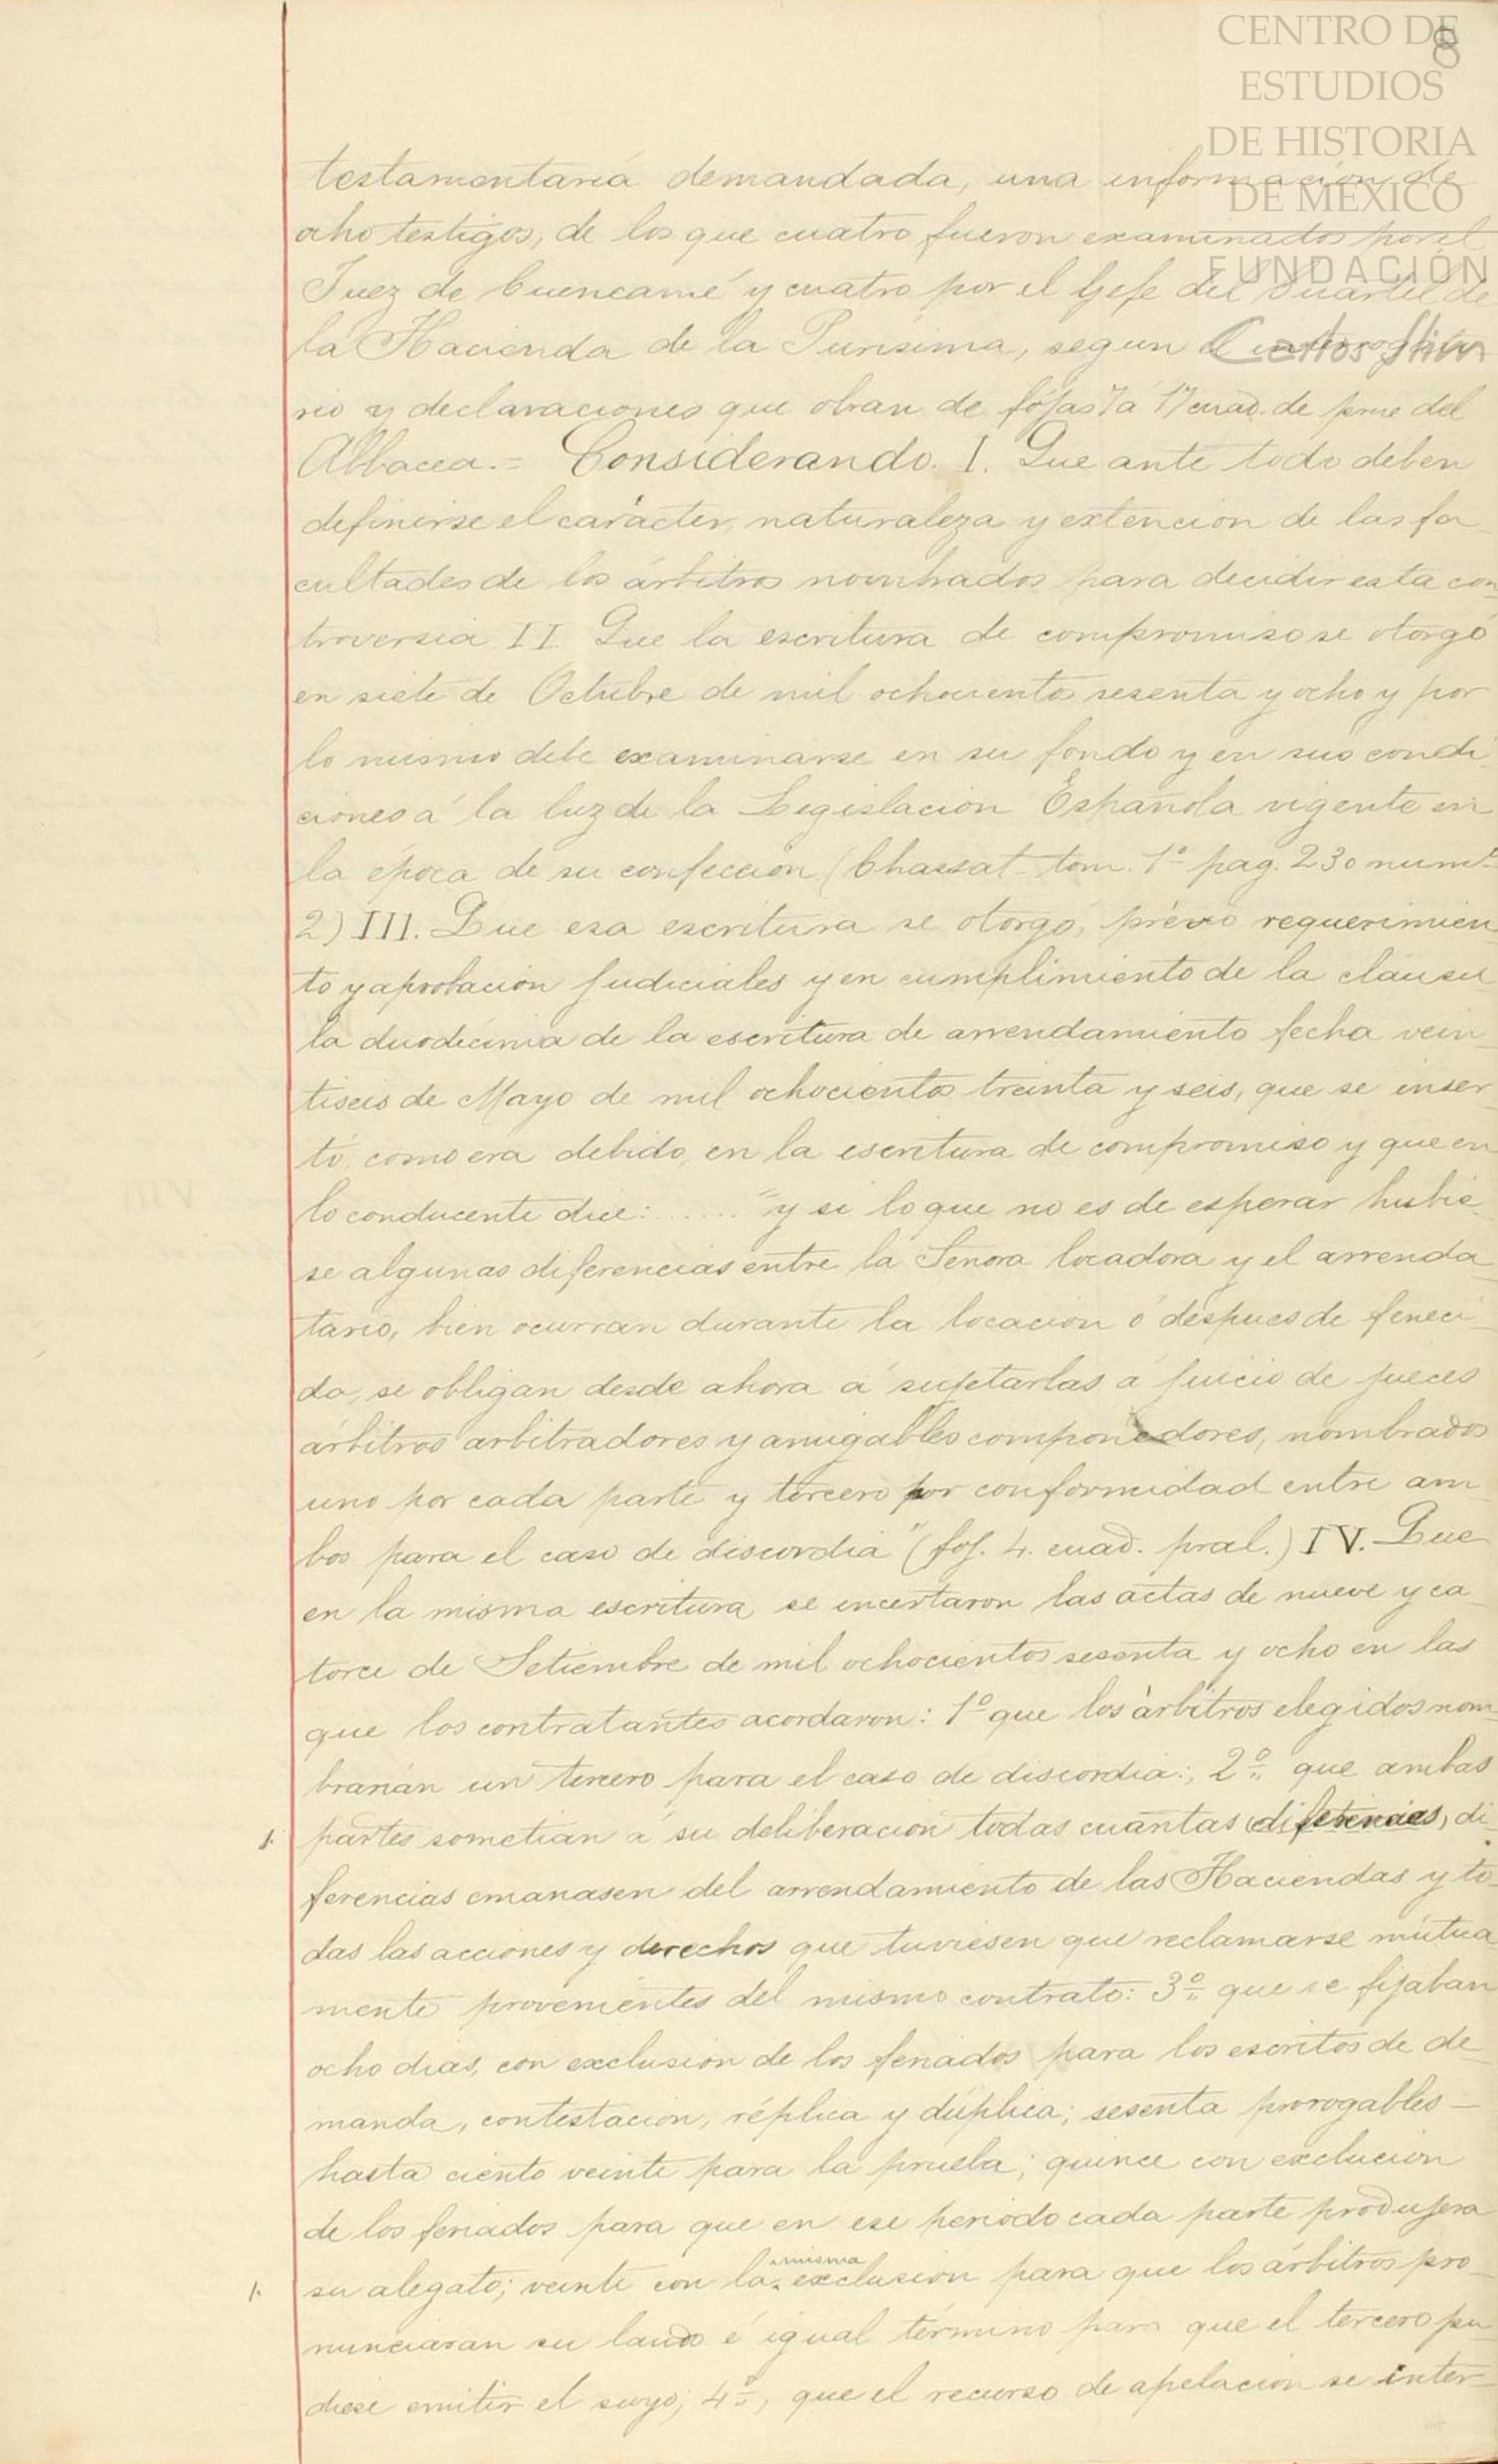 CENTRO DE
8
ESTUDIOS
DE HISTORIA
DE MÉXICO
FUNDACIÓN
Carlos Slim
testamentaría demandada, una información de
ocho testigos, de los que cuatro fueron examinados por el
Juez de Cuencamé y cuatro por el Gefe del Cuartel de
la Hacienda de la Purísima, segun el interrogato
rio y declaraciones que obran de fójas 7 á 17 cuad. de prue del
Albacea.- Considerando. I. Que ante todo deben
definirse el carácter, naturaleza y extencion de las fa_
cultades de los árbitros nombrados para decidir esta con_
troversia. II. Que la escritura de compromiso se otorgó
en siete de Octubre de mil ochocientos sesenta y ocho y por
lo mismo debe examinarse en su fondo y en sus condi_
ciones á la luz de la Legislación Española vigente en
la época de su confección (Chassat - tom. 1º pag. 230 numº
2) III. Que esa escritura se otorgó, prévio requerimien_
to y aprobación judiciales y en cumplimiento de la cláusu_
la duodécima de la escritura de arrendamiento fecha vein_
tiseis de Mayo de mil ochocientos treinta y seis, que se inser_
tó, como era debido, en la escritura de compromiso y que en
lo conducente dice: ...... "y si lo que no es de esperar hubie_
se algunas diferencias entre la Señora locadora y el arrenda_
tario, bien ocurran durante la locacion ó despues de feneci_
da, se obligan desde ahora á sujetarlas á juicio de jueces
árbitros arbitradores y amigables componedores, nombrados
uno por cada parte y tercero por conformidad entre am_
bos para el caso de discordia" (foj. 4. cuad. pral.) IV. Que
en la misma escritura se incertaron las actas de nueve y ca_
torce de Setiembre de mil ochocientos sesenta y ocho en las
que los contratantes acordaron: 1º que los árbitros elegidos nom_
brarian un tercero para el caso de discordia:, 2º que ambas
1. partes sometian á su deliberacion todas cuantas diferencias, di_
ferencias emanasen del arrendamiento de las Haciendas y to_
das las acciones y derechos que tuviesen que reclamarse mútua_
mente provenientes del mismo contrato: 3º que se fijaban
ocho dias, con exclusion de los feriados para los escritos de de_
manda, contestacion, réplica y dúplica; sesenta prorogables _
hasta ciento veinte para la prueba; quince con exclucion
de los feriados para que en ese periodo cada parte produjera
misma
1. su alegato; veinte con la exclusion para que los árbitros pro_
nunciaran su laudo é igual término para que el tercero pu_
diese emitir el suyo; 4º, que el recurso de apelacion se inter_